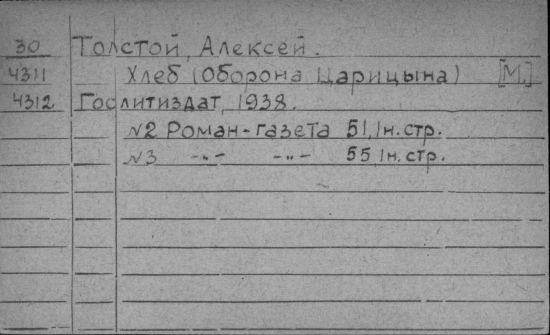 30 Толстой, Алексей.
4311 Хлеб (Оборона Царицына) [М.]
4312 Гослитиздат, 1938.
№2 Роман-газета 51, 1н. стр.
№3 -"- -"- 55, 1н. стр.